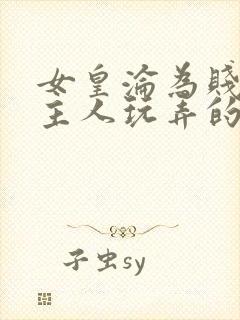 女皇淪為賤
主人玩弄的
子虫sy